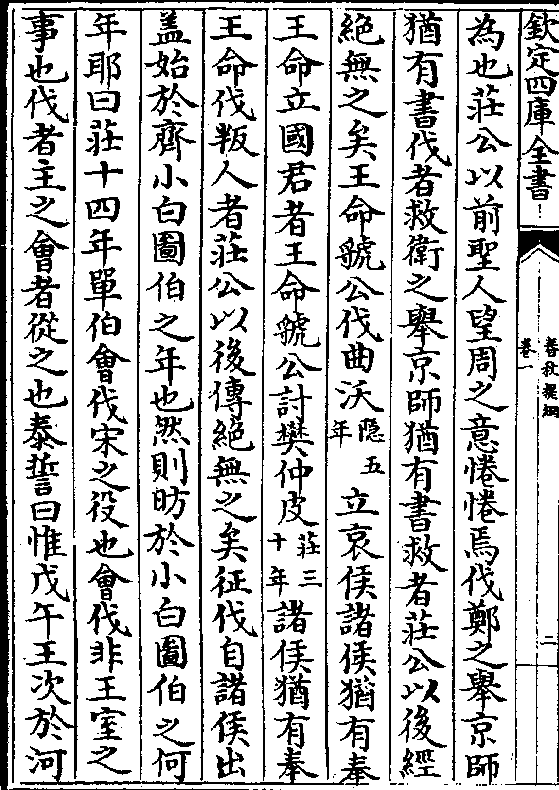 欽定四庫全書
春秋提綱
卷一
二
為也莊公以前聖人望周之意惓惓焉伐鄭之舉京師
猶有書伐者救衛之舉京師猶有書救者莊公以後經
絶無之矣王命虢公伐曲沃隠五年立哀侯諸侯猶有奉
王命立國君者王命虢公討樊仲皮莊三十年諸侯猶有奉
王命伐叛人者莊公以後傳絕無之矣征伐自諸侯出
盖始於齊小白圖伯之年也然則昉於小白圖伯之何
年耶曰莊十四年單伯會伐宋之役也會伐非王室之
事也伐者主之會者從之也泰誓曰惟戊午王次於河